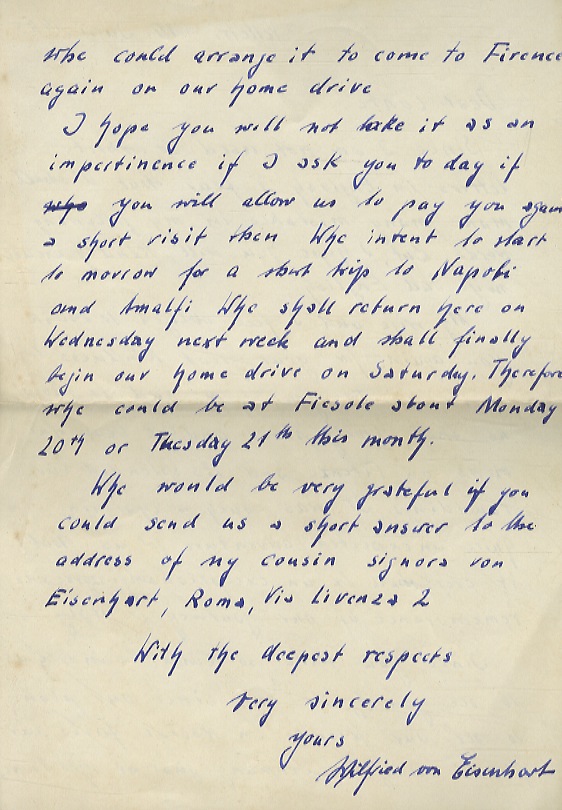 whe could arrange it to come to Firence
again on our home drive
I hope you will not take it as an
impertinence if I ask you to day if
whe you will allow us to pay you again
a short visit then Whe intent to start
to morrow for a short trip to Napoli
and Amalfi Whe shall return here on
Wednesday next week and shall finally
begin our home drive on Saturday. Therefore
whe could be at Fiesole about Monday
20th or Tuesday 21th this month.
Whe would be very grateful if you
could send us a short answer to the
address of my cousin signora von
Eisenhart, Roma, Via Livenza 2
With the deepest respects
very sincerely
yours
Wilfried von Eisenhart